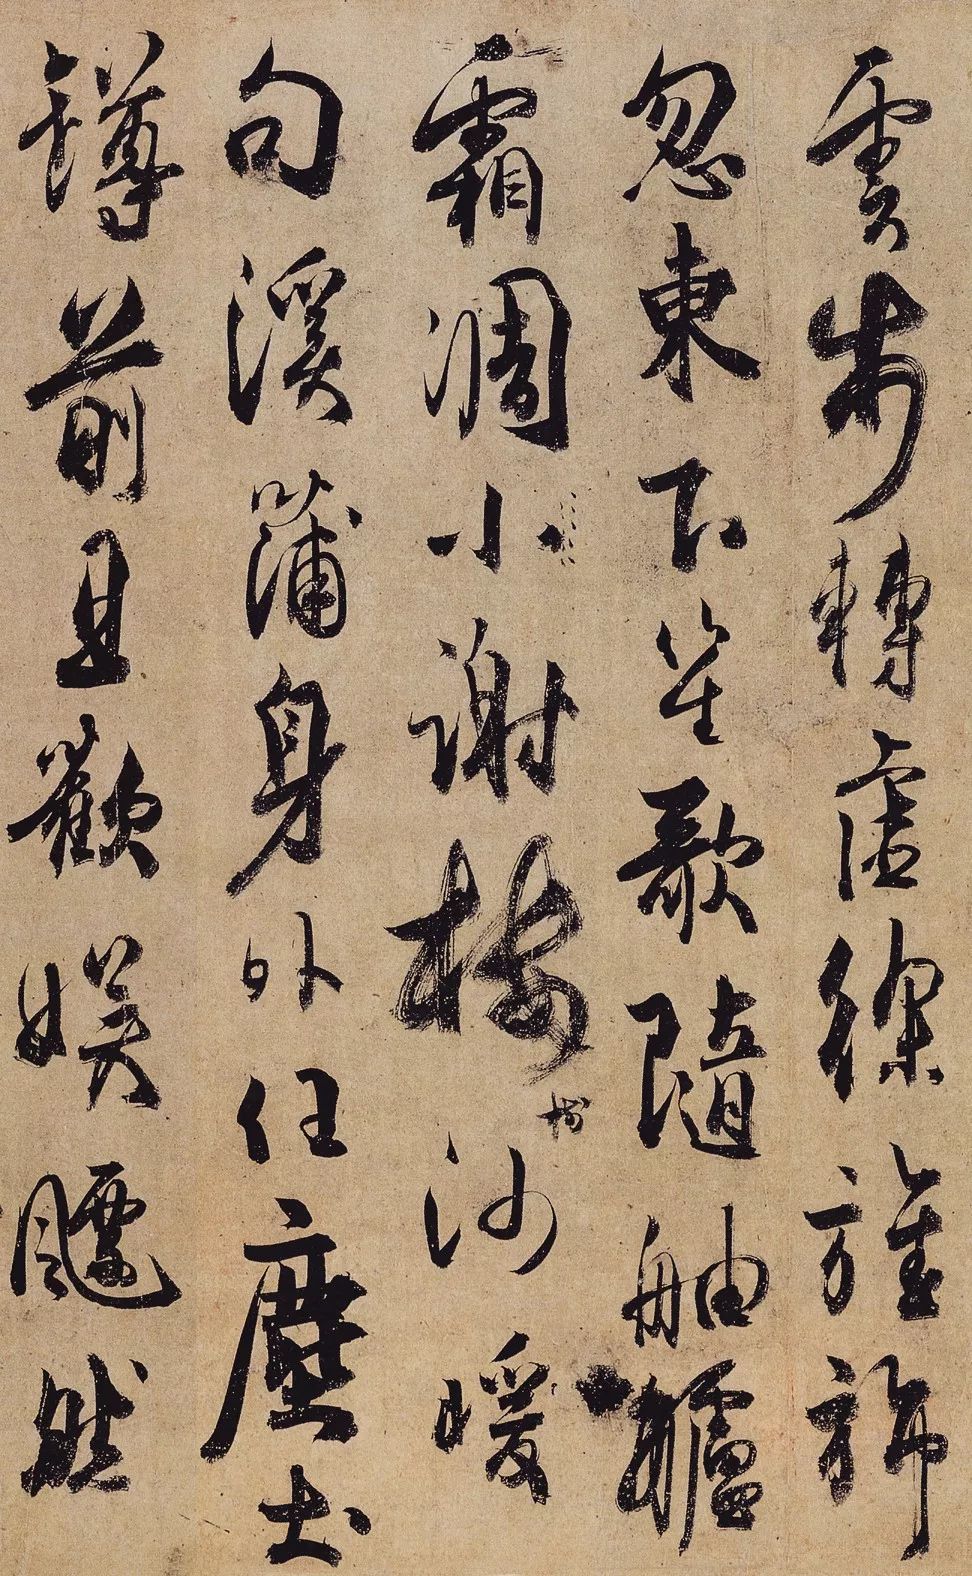 雲步轉虛徐旌旆
忽東下笙歌隨舳艫
霜凋小謝樓樹沙暖
句溪蒲身外任塵土
罇前且歡娛飃然